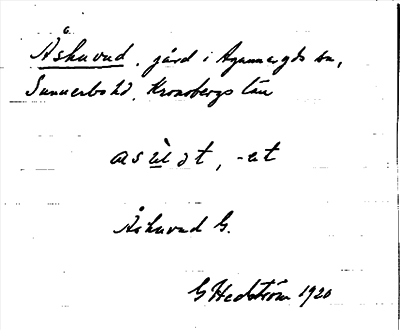 Åshuvud. gård i Agunnaryds sn,
Sunnerbo hd, Kronobergs län
-et
Åshuvud G.
G Hedström 1920